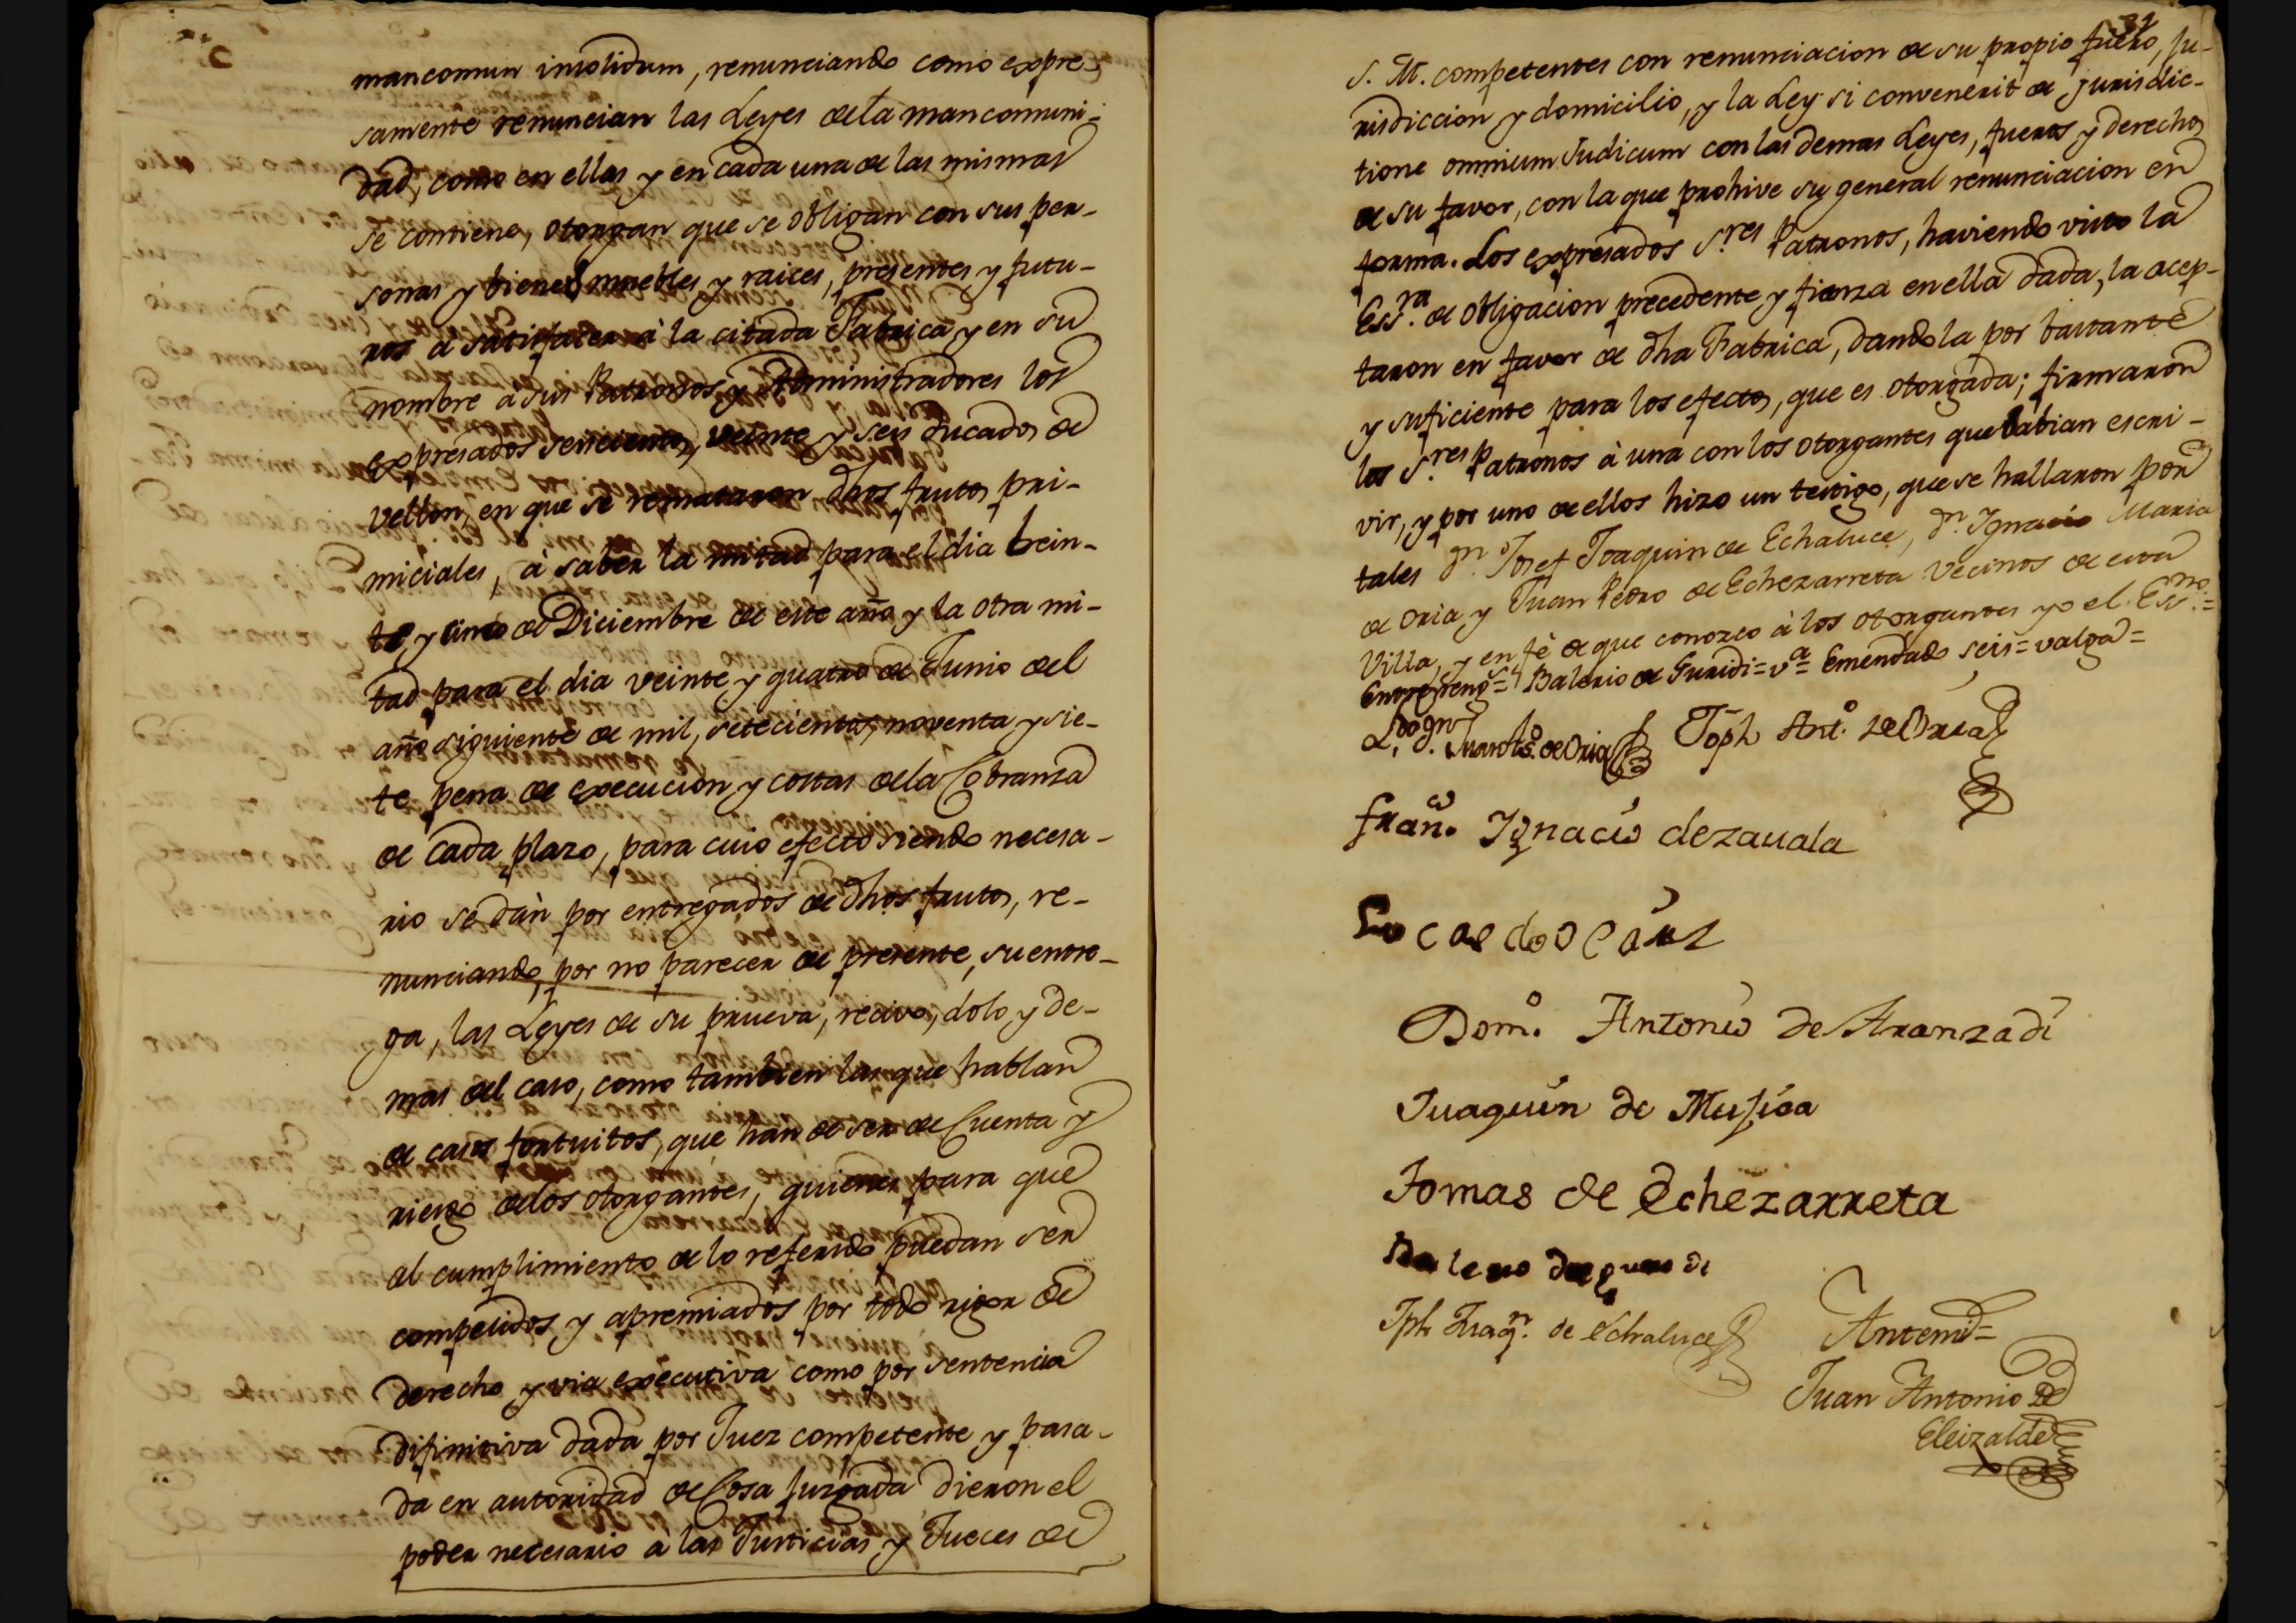 mancomun insolidum, renunciando como expre-
samente renuncian las Leyes dela mancomuni-
dad, como en ellas y en cada una de las mismas
se contiene, otorgan que se obligan con sus per-
sonas y bienes muebles y raices, presentes y futu-
ros à satisfacer à la citada Fabrica y en su
nombre à sus Patronos y Administradores los
expresados seiscientos, veinte y seis ducados de
vellon, en que se remataron dhos frutos pri-
miciales, à saber la mitad para el dia vein-
te, y cinco de Diciembre de este año y la otra mi-
tad para el dia veinte y quatro de Junio del
año siguiente de mil, setecientos, noventa y sie-
te pena de execucion y costas dela Cobranza
de cada plazo, para cuio efecto siendo necesa-
rio se dàn por entregados de dhos frutos, re-
nunciando, por no parecer de presente, su entre-
ga, las Leyes de su prueva, recivo, dolo y de-
mas del caso, como tambien las que hablan
de casos fortuitos, que han de ser de Cuenta y
riesgo delos otorgantes, quienes para que
al cumplimiento de lo referido puedan ser
compelidos y apremiados por todo rigor de
derecho y via executiva como por sentencia
difinitiva dada por Juez competente y pasa-
da en autoridad de Cosa Juzgada dieron el
poder necesario à las Justicias y Jueces de
S. M. competentes con renunciacion de su propio fuero, ju-
risdiccion y domicilio, y la Ley si convenerit de jurisdic-
tione omnium Judicum con las demas Leyes, fueros y derechos
de su favor, con la que prohive su general renunciacion en
forma. Los expresados S.res Patronos, haviendo visto la
Ess.ra de obligacion precedente y fianza en ella dada, la acep-
taron en favor de dha Fabrica, dandola por bastante
y suficiente para los efectos, que es otorgada; firmaron
los S.res Patronos à una con los otorgantes que sabian escri-
vir, y por uno de ellos hizo un testigo, que se hallaron por
tales Dn. Josef Joaquin de Echaluce, Dn. Ignacio Maria
de Oria y Juan Pedro de Echezarreta Vecinos de esta
Villa, y en fè de que conozco à los otorgantes yo el Ess.no =
Entrerreng.s = Balerio de Guridi = v.a Emendado seis = valga =
L.do Dn. Juan de Oria Joph Ant.o de Oria
Fran.co Ignacio de zauala
Domo. Antonio de Aranzadi
Juaquin de Mujica
Tomas de Echezarreta
Balerio de guridi
Jph Juaq.n de Echaluce
Antemi =
Juan Antonio de
Eleizalde